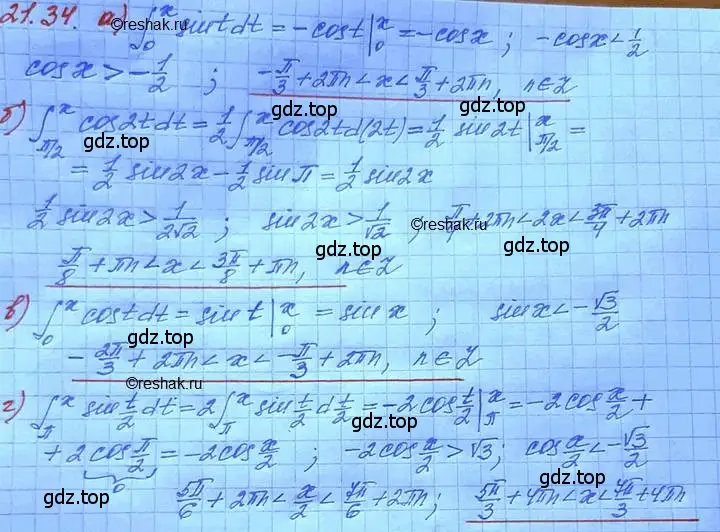 21.34. а) ∫₀ˣ sint dt = -cost|₀ˣ = -cosx ; -cosx < 1/2
cosx > -1/2 ; -π/3 + 2πn < x < π/3 + 2πn, n∈Z
©reshak.ru
gdz.top
gdz.top
б) ∫_{π/2}^x cos2t dt = 1/2 ∫_{π/2}^x cos2t d(2t) = 1/2 sin2t|_{π/2}^x =
gdz.top
gdz.top
= 1/2 sin2x - 1/2 sinπ = 1/2 sin2x
1/2 sin2x > 1/(2√2) ; sin2x > 1/√2 ; π/4 + 2πn < 2x < 3π/4 + 2πn
©reshak.ru
gdz.top
π/8 + πn < x < 3π/8 + πn, n∈Z
gdz.top
в) ∫₀ˣ cost dt = sint|₀ˣ = sinx ; sinx < -√3/2
gdz.top
gdz.top
-2π/3 + 2πn < x < -π/3 + 2πn, n∈Z
©reshak.ru
г) ∫_π^x sin t/2 dt = 2∫_π^x sin t/2 d t/2 = -2cos t/2|_π^x = -2cos x/2 +
gdz.top
gdz.top
+ 2cos π/2 = -2cos x/2 ; -2cos x/2 > √3 ; cos x/2 < -√3/2
0
©reshak.ru
5π/6 + 2πn < x/2 < 7π/6 + 2πn ; 5π/3 + 4πn < x < 7π/3 + 4πn
gdz.top
gdz.top